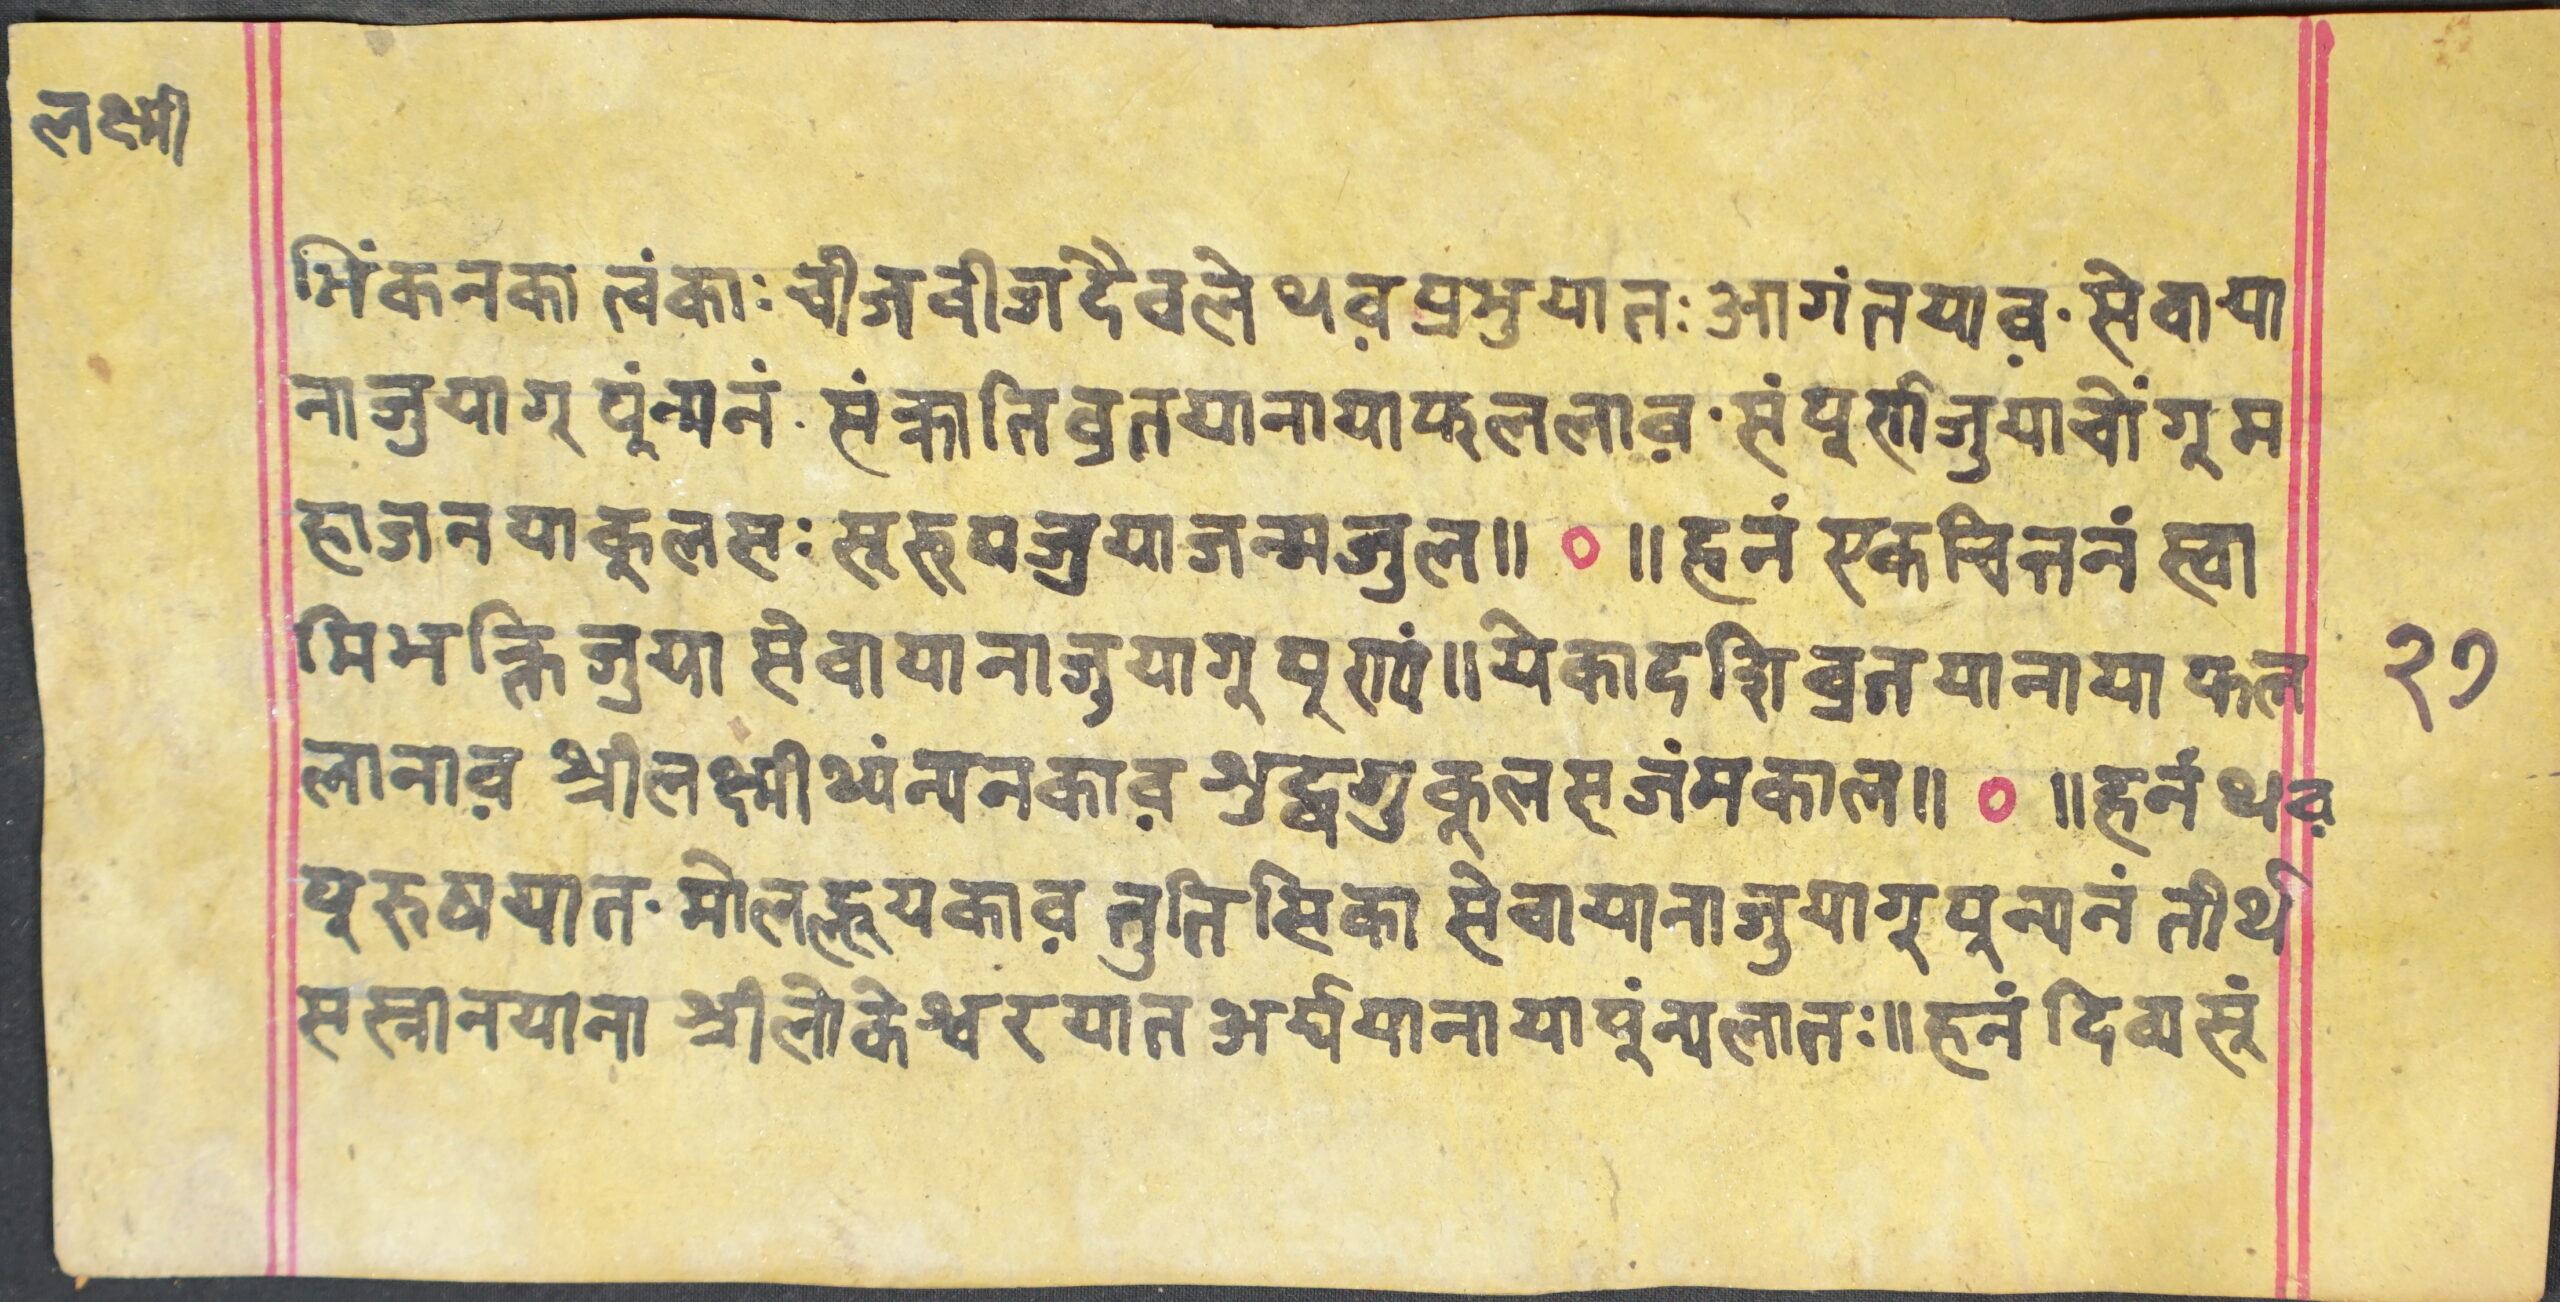 लक्ष्मी
मिंकनका त्वंकाः चीजवीजदैवले थव़प्रभुयातः आगंतयाव़· सेवाया
नाजुयागू पुंन्मनं· संक्रातिव्रतयानायाफललाव़· संपूर्णजुयाचोंगू म
हाजनयाकुलसः सुरूपजुयाजन्मजुल॥ ० ॥हनं एकचित्तनं स्वा
मिभक्तिजुया सेवायानाजुयागू पूण्यं॥येकादशिव्रतयानाया फल
लानाव़ श्रीलक्ष्मीथ्यंन्मनकाव़ शुद्धगुकुलसजंमकाल॥ ० ॥हनं थव़
पुरुषयात· मोलह्लुयकाव़ तुतिसिका सेवायानाजुयागू पुन्यनं तीर्थ
सस्नानयाना श्रीलोकेश्वरयात अर्घयानाया पुंन्यलातः॥हनं दिव्यसुं
२७